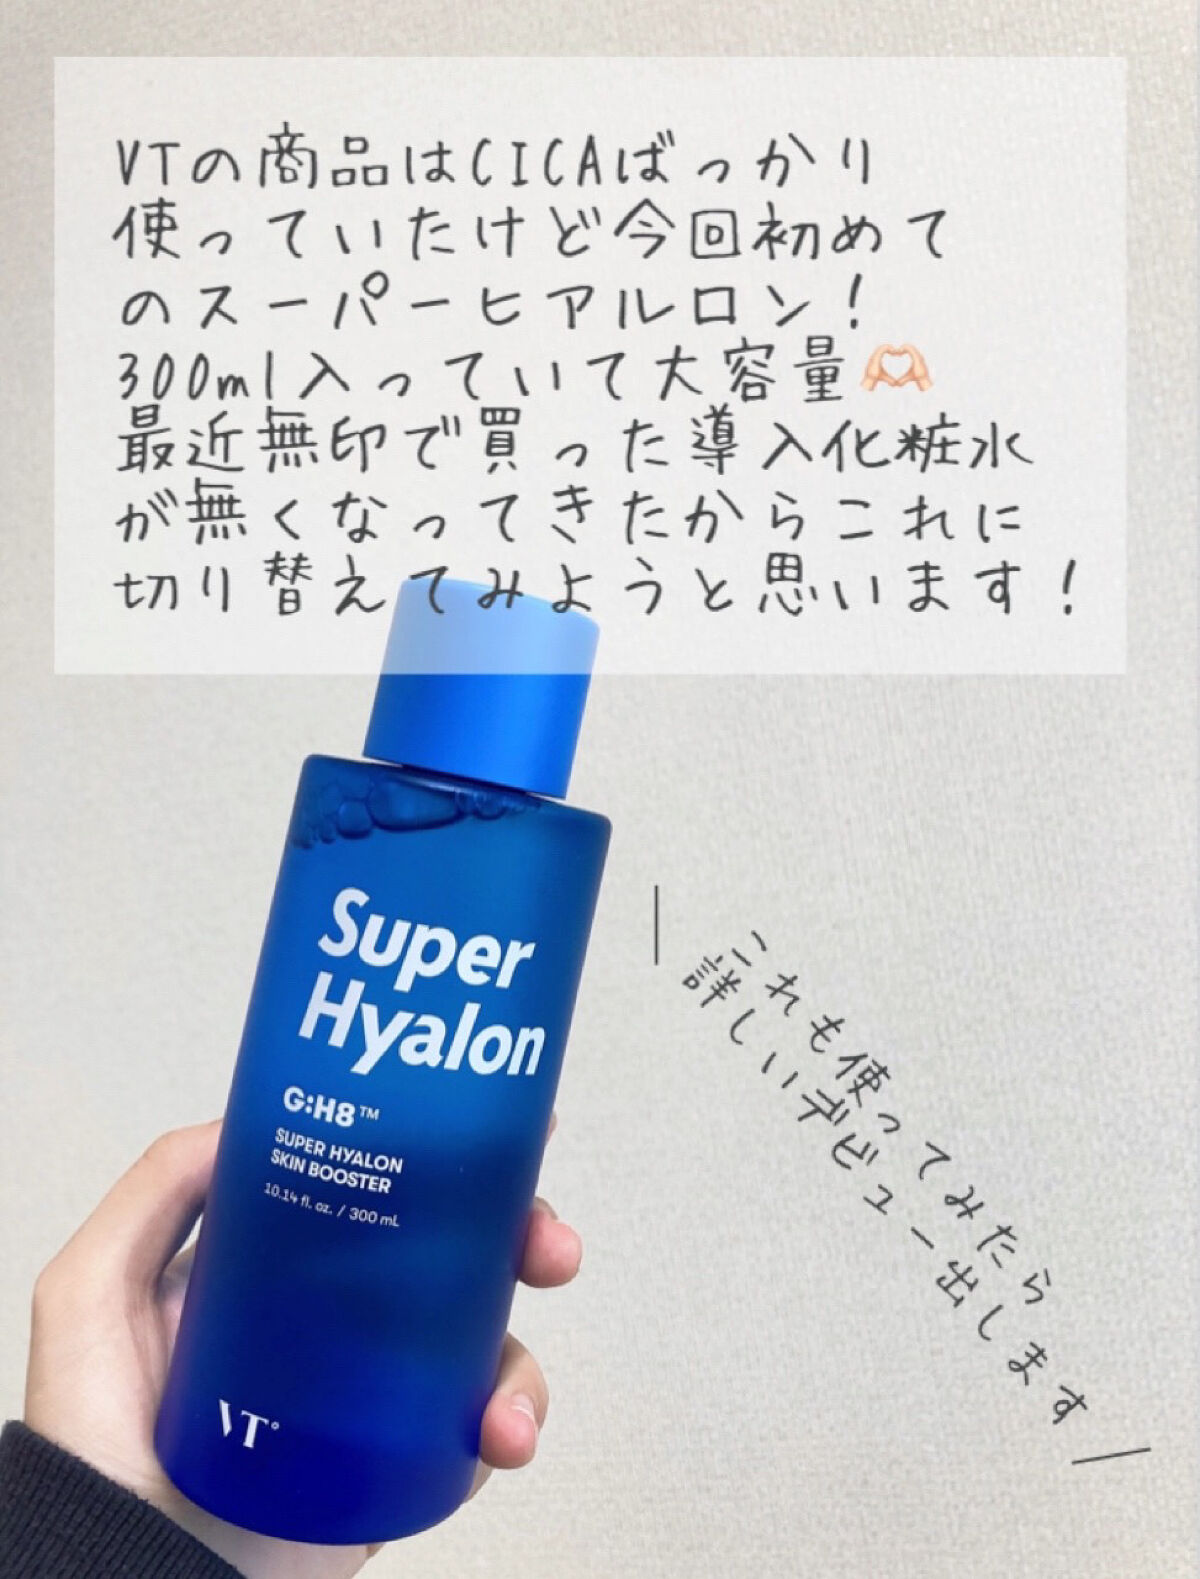 VTの商品はCICAばっかり
使っていたけど今回初めて
のスーパーヒアルロン！
300ml入っていて大容量🫶🏻
最近無印で買った導入化粧水
が無くなってきたからこれに
切り替えてみようと思います！
Super
Hyalon
G:H8™
SUPER HYALON
SKIN BOOSTER
10.14 fl. oz. / 300 mL
VT°
これも使ってみたら
詳しいデビュー出します